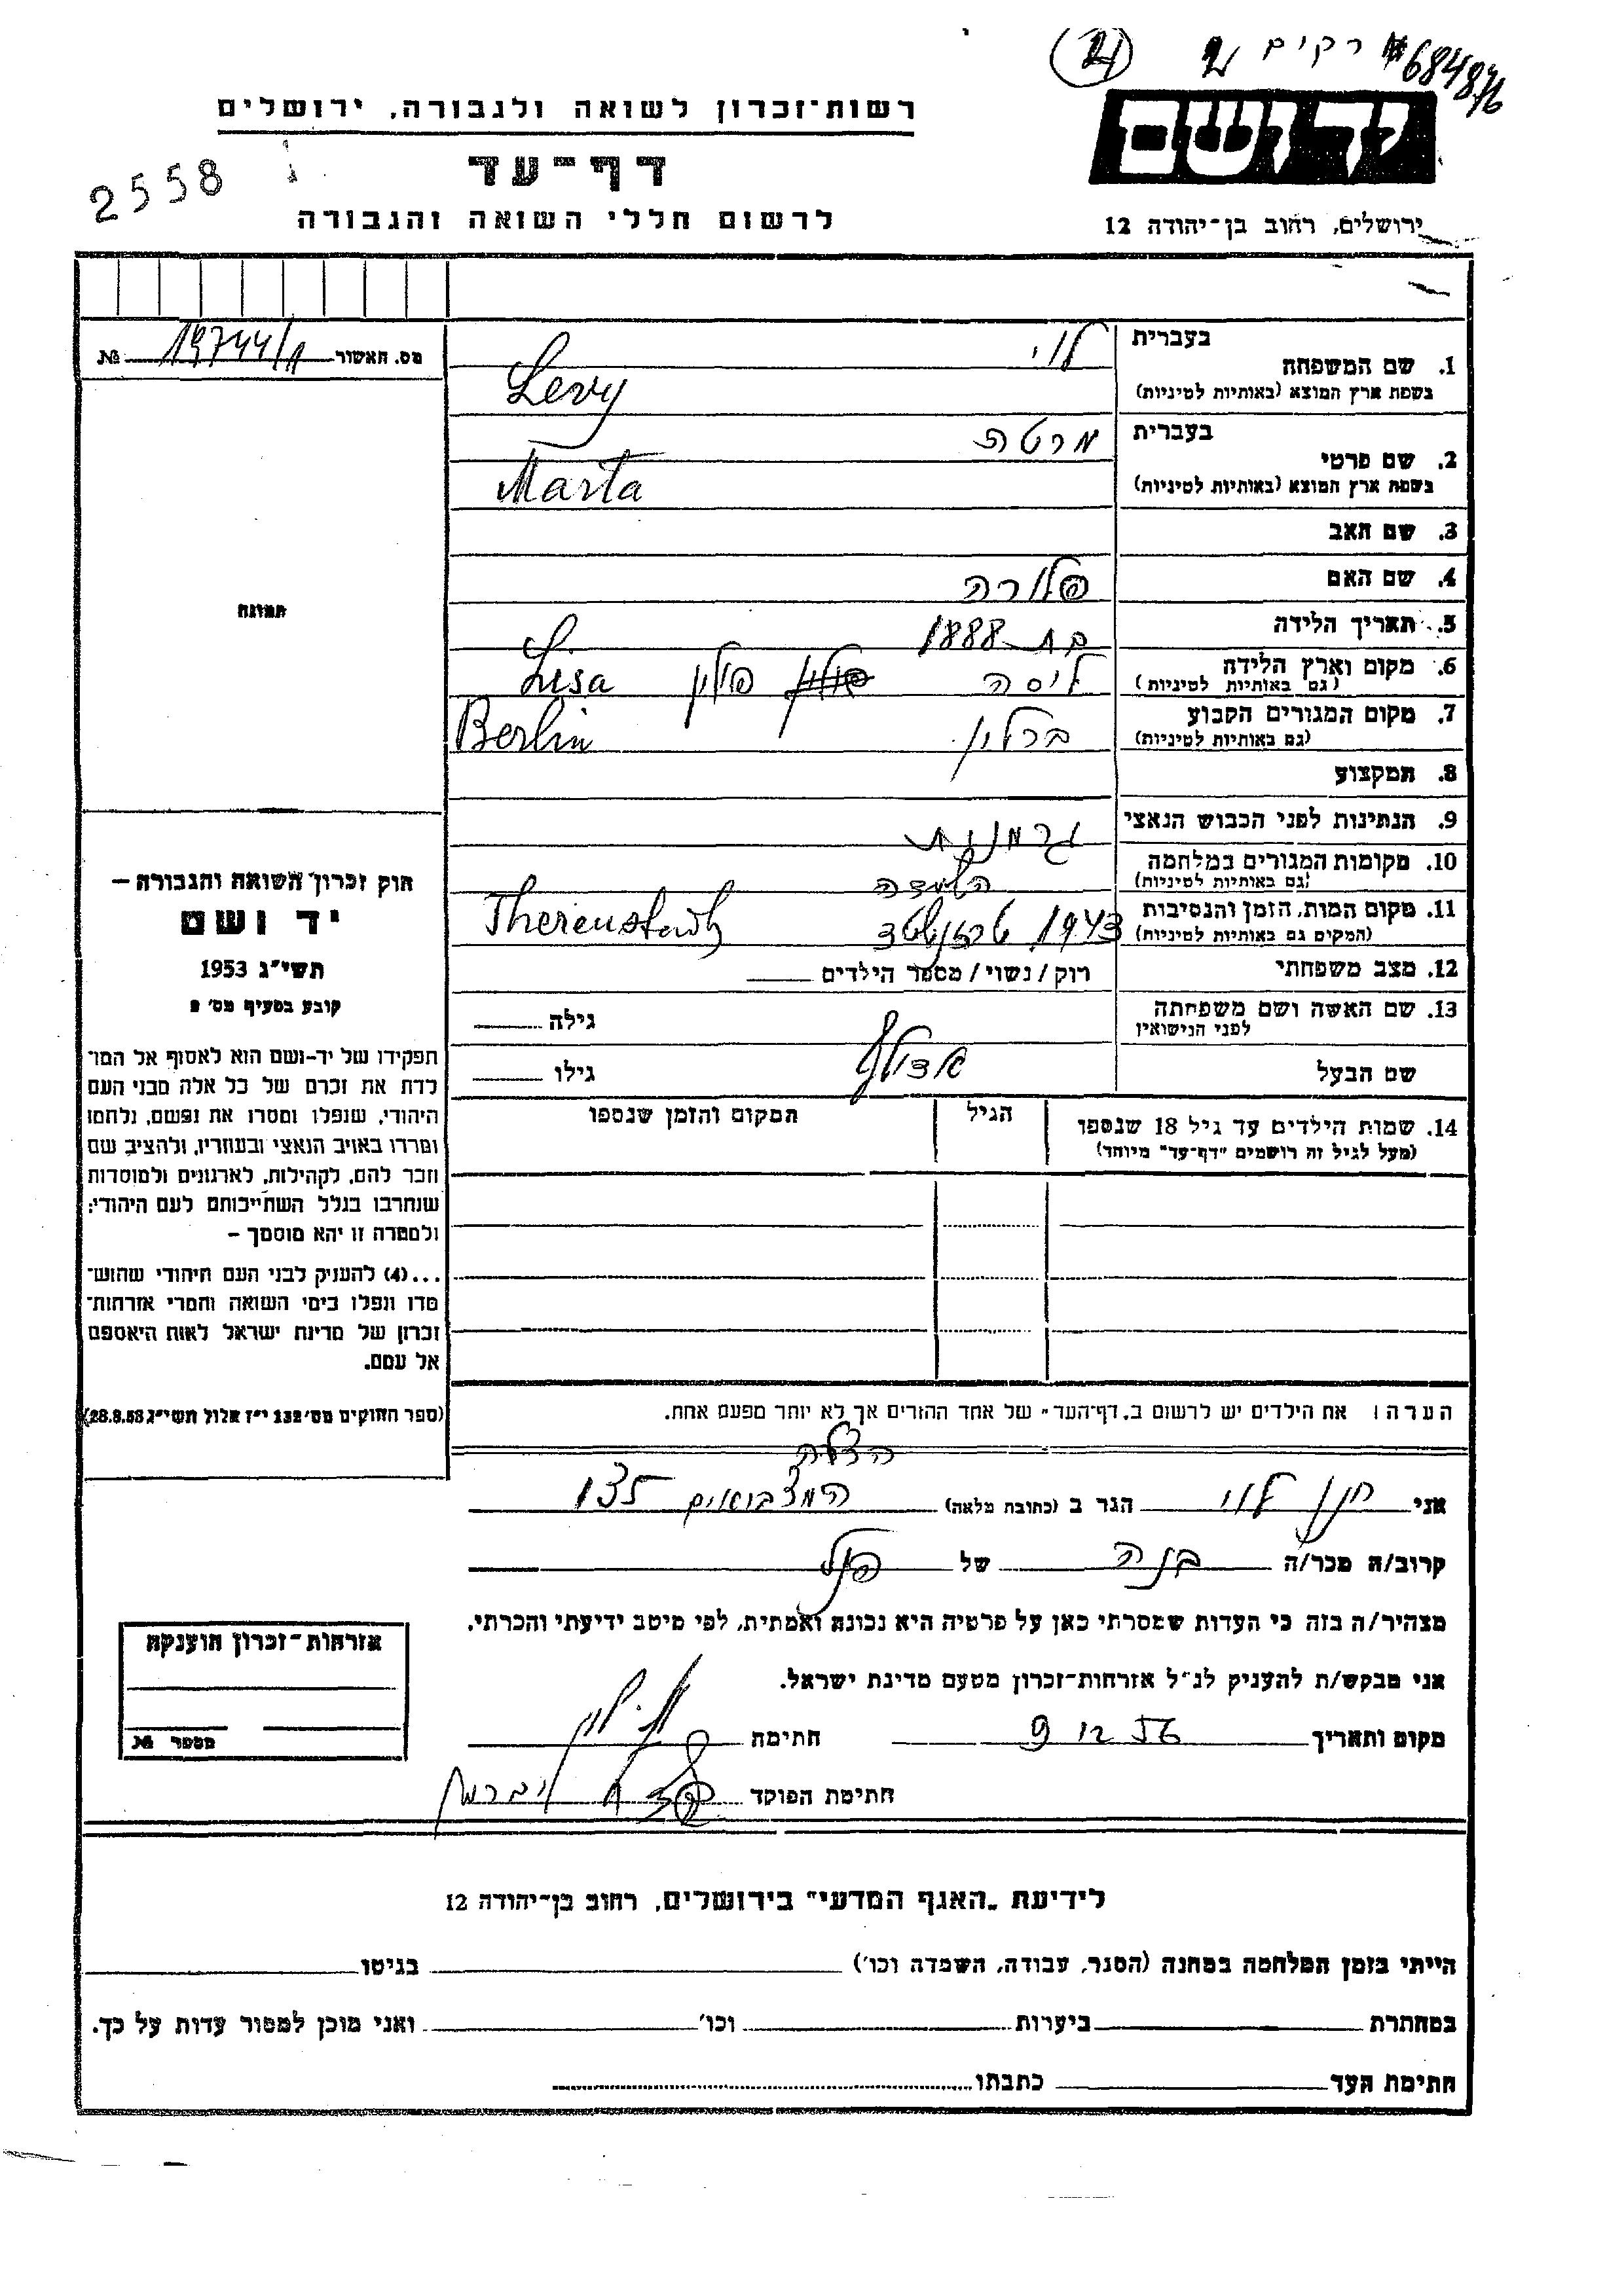 רקים
684876
רשות־זכרון לשואה ולגבורה, ירושלים
יד ושם
דף־עד
2558
לרשום חללי השואה והגבורה
ירושלים, רחוב בן־יהודה 12
מס. האשור № 19744/1
תמונה
1. שם המשפחה
בעברית לוי
בשפת ארץ המוצא (באותיות לטיניות) Levy
2. שם פרטי
בעברית מרטה
בשפת ארץ המוצא (באותיות לטיניות) Marta
3. שם האב
4. שם האם פלורה
5. תאריך הלידה בת 1888
6. מקום וארץ הלידה
(גם באותיות לטיניות) ליסה פולין Lisa
7. מקום המגורים הקבוע
(גם באותיות לטיניות) ברלין Berlin
8. המקצוע
9. הנתינות לפני הכבוש הנאצי גרמנית
10. מקומות המגורים במלחמה
(גם באותיות לטיניות)
11. מקום המות, הזמן והנסיבות
(המקום גם באותיות לטיניות) 1943
12. מצב משפחתי רוק / נשוי / מספר הילדים
13. שם האשה ושם משפחתה
לפני הנישואין גילה
שם הבעל אדולף גילו
14. שמות הילדים עד גיל 18 שנספו הגיל המקום והזמן שנספו
(מעל לגיל זה רושמים "דף־עד" מיוחד)
הערה: את הילדים יש לרשום ב„דף־העד" של אחד ההורים אך לא יותר מפעם אחת.
חוק זכרון השואה והגבורה –
יד ושם
תשי"ג 1953
קובע בסעיף מס' 2
תפקידו של יד־ושם הוא לאסוף אל המו־
לדת את זכרם של כל אלה מבני העם
היהודי, שנפלו ומסרו את נפשם, נלחמו
ומרדו באויב הנאצי ובעוזריו, ולהציב שם
וזכר להם, לקהילות, לארגונים ולמוסדות
שנחרבו בגלל השתייכותם לעם היהודי;
ולמטרה זו יהא מוסמך –
...(4) להעניק לבני העם היהודי שהוש־
מדו ונפלו בימי השואה והמרי אזרחות־
זכרון של מדינת ישראל לאות היאספם
אל עמם.
(ספר החוקים מס' 132 י"ז אלול תשי"ג 28.8.53)
אני חנן לוי הגר ב (כתובת מלאה)
קרוב/ה מכר/ה בנה של הנ"ל
מצהיר/ה בזה כי העדות שמסרתי כאן על פרטיה היא נכונה ואמתית, לפי מיטב ידיעתי והכרתי.
אני מבקש/ת להעניק לנ"ל אזרחות־זכרון מטעם מדינת ישראל.
מקום ותאריך 9 12 56 חתימה
חתימת הפוקד
אזרחות־זכרון הוענקה
מספר №
לידיעת „האגף המדעי" בירושלים, רחוב בן־יהודה 12
הייתי בזמן המלחמה במחנה (הסגר, עבודה, השמדה וכו') בגיטו
במחתרת ביערות וכו' ואני מוכן למסור עדות על כך.
חתימת העד כתבתו